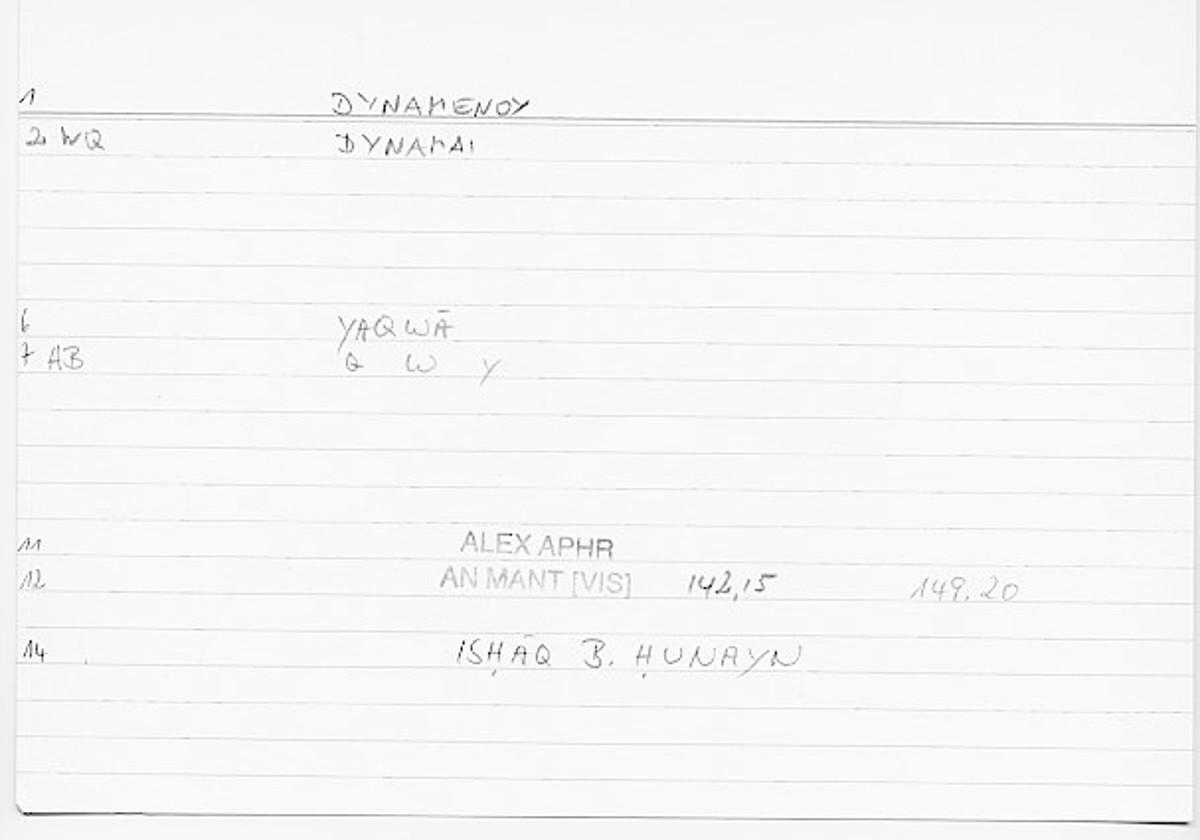 1 DYNAMENOY
2 WQ DYNAMAI
6 YAQWĀ
7 AB Q W Y
11 ALEX APHR
12 AN MANT [VIS] 142,15 149.20
14 ISḤĀQ B. ḤUNAYN